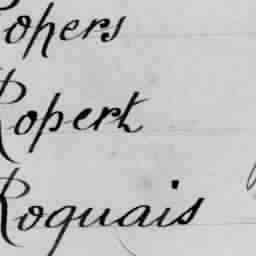 Rohers
Ropert
Roquais